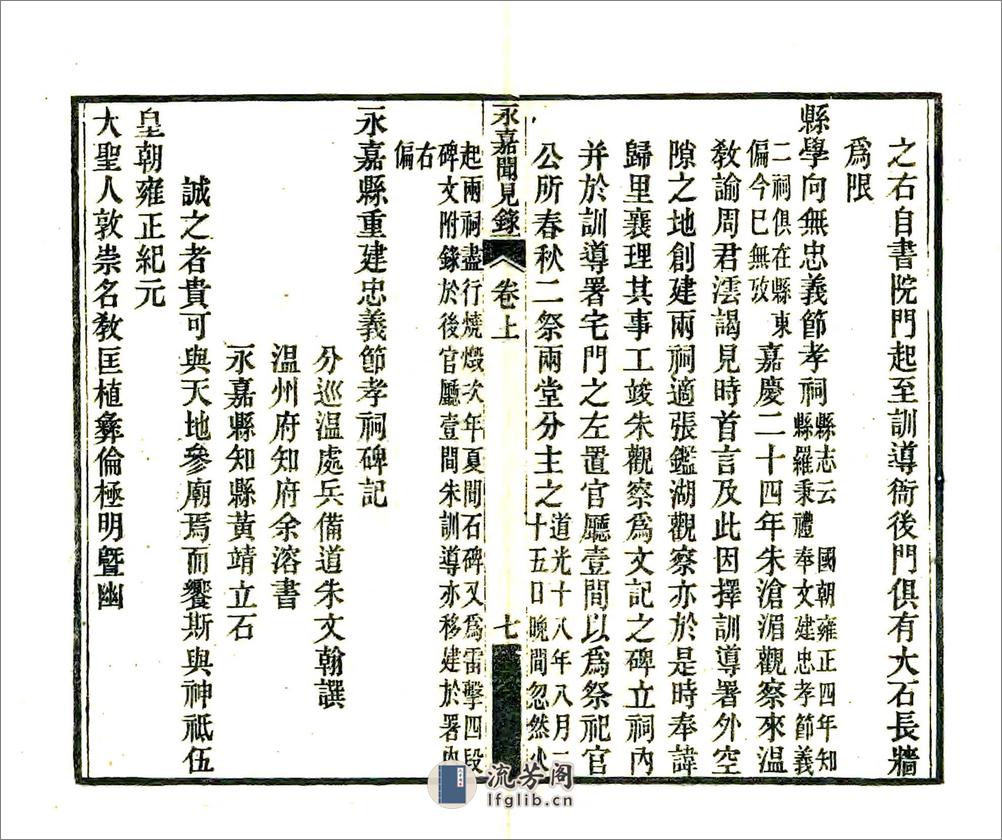 之右自書院門起至訓導衙後門俱有大石長牆
爲限
縣學向無忠義節孝祠縣志云 國朝雍正四年知
縣羅秉禮奉文建忠孝節義
二祠俱在縣東
偏今巳無攷嘉慶二十四年朱滄湄觀察來溫
敎諭周君澐謁見時首言及此因擇訓導署外空
隙之地創建兩祠適張鑑湖觀察亦於是時奉諱
歸里襄理其事工竣朱觀察爲文記之碑立祠內
并於訓導署宅門之左置官廳壹間以爲祭祀官
公所春秋二祭兩堂分主之道光十八年八月二
十五日晚間忽然火
永嘉聞見錄 卷上 七
起兩祠盡行燒燬次年夏間石碑又爲雷擊四段
碑文附錄於後官廳壹間朱訓導亦移建於署內
右
偏
永嘉縣重建忠義節孝祠碑記
分巡温處兵備道朱文翰譔
温州府知府余溶書
永嘉縣知縣黃靖立石
誠之者貴可與天地參廟焉而饗斯與神祇伍
皇朝雍正紀元
大聖人敦崇名敎匡植彝倫極明曁幽
流芳阁
lfglib.cn